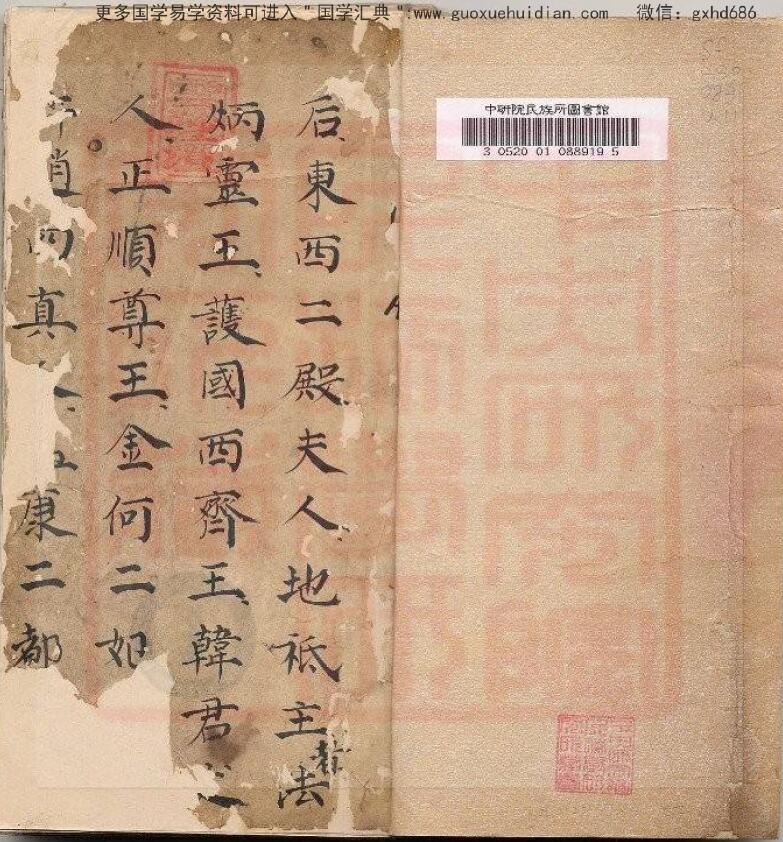 更多国学易学资料可进入＂国学汇典＂:www.guoxuehuidian.com 微信：gxhd686
中研院民族所圖書館
3 0520 01 088919 5
后東西二殿夫人地祇主法
炳靈王護國西齊王韓君
人正順尊王金何二妃
肖四真康二都